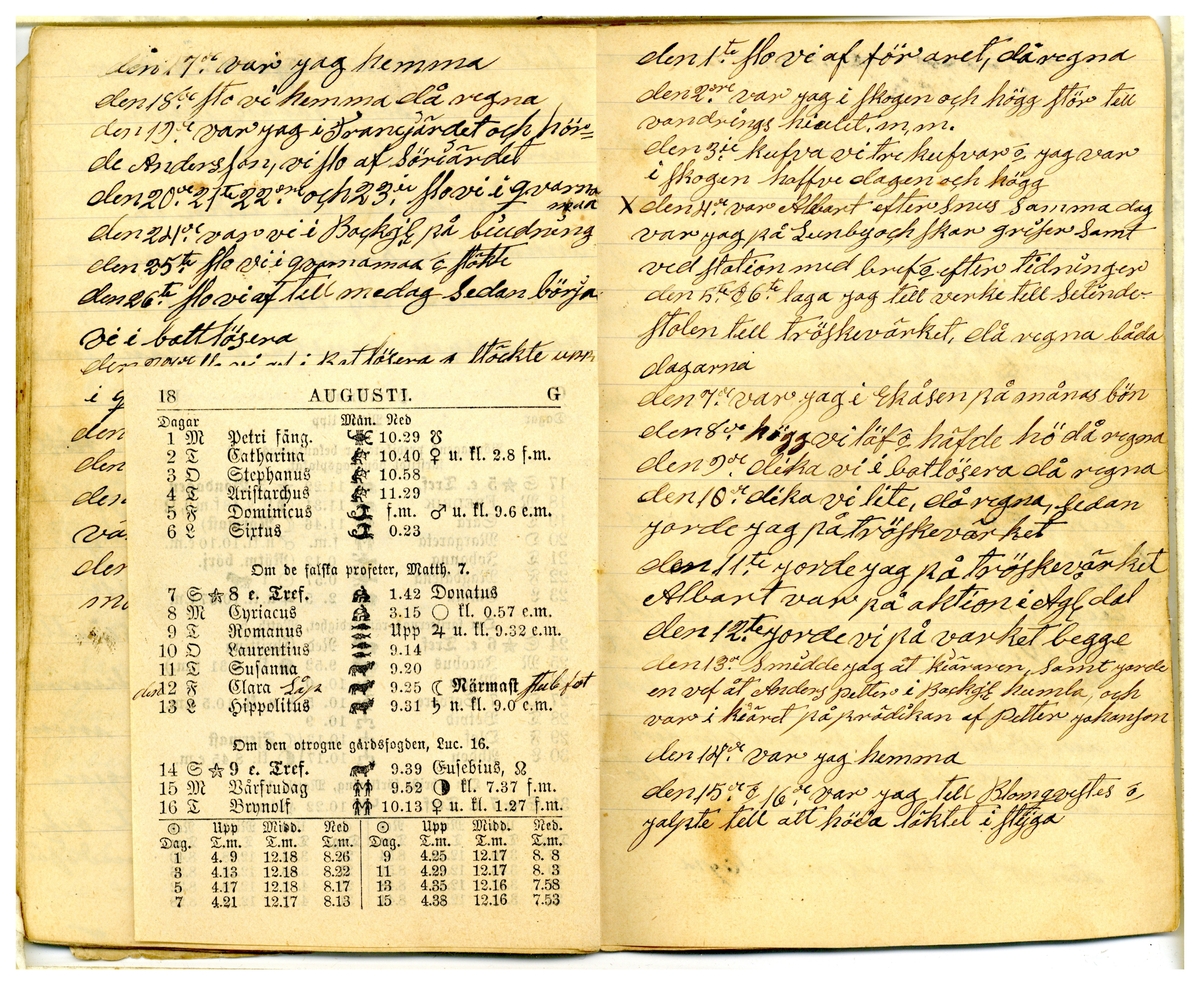 den 17de var jag hemma
den 18de slo vi hemma då regna
den 19de var jag i Tranjärdet och hör=
de Andersson, vi slo af Sörjärdet
den 20de 21te 22dre och 23ie slo vi i qvarna
maa
den 24de var vi i Bockjl på biudning
den 25te slo vi i qvarnamaa
den 26te slo vi af till medag sedan börja
vi i batlösera
i batlösera
i q
den
den
den
vä
den
18 AUGUSTI. G
Dagar Mån. Ned
1 M Petri fäng. 10.29 ☋
2 T Catharina 10.40 ♀ u. kl. 2.8 f.m.
3 O Stephanus 10.58
4 T Aristarchus 11.29
5 F Dominicus f.m. ♂ u. kl. 9.6 e.m.
6 L Sixtus 0.23
Om de falska profeter, Matth. 7.
7 S ☆ 8 e. Tref. 1.42 Donatus
8 M Cyriacus 3.15 ○ kl. 0.57 e.m.
9 T Romanus Upp ♃ u. kl. 9.32 e.m.
10 O Laurentius 9.14
11 T Susanna 9.20
den 12 F Clara 9.25 ☾ Närmast
13 L Hippolitus 9.31 ♄ u. kl. 9.0 e.m.
Om den otrogne gårdsfogden, Luc. 16.
14 S ☆ 9 e. Tref. 9.39 Eusebius, ☊
15 M Vårfrudag 9.52 ◑ kl. 7.37 f.m.
16 T Brynolf 10.13 ♀ u. kl. 1.27 f.m.
☉ Upp Midd. Ned ☉ Upp Midd. Ned.
Dag. T.m. T.m. T.m. Dag. T.m. T.m. T.m.
1 4. 9 12.18 8.26 9 4.25 12.17 8. 8
3 4.13 12.18 8.22 11 4.29 12.17 8. 3
5 4.17 12.18 8.17 13 4.35 12.16 7.58
7 4.21 12.17 8.13 15 4.38 12.16 7.53
den 1te slo vi af för aret, då regna
den 2dre var jag i skogen och högg stör till
vandrings hiulet, m, m.
den 3ie kufva vi tre kufvar o, jag var
i skogen halfve dagen och högg
X den 4de var Albart efter snus samma dag
var jag på Lunby och skar griser samt
ved station med bref o efter tidninger
den 5te & 6te laga jag tell verke tell Selinde-
stolen tell tröskevärket, då regna båda
dagarna
den 7de var jag i Ekåsen på månas bön
den 8de högg vi löf o häfde hö då regna
den 9de dika vi i batlösera då regna
den 10de dika vi lite, då regna, sedan
jorde jag på tröskevärket
den 11te jorde jag på tröskevärket
Albart var på aktion i Agl dal
den 12te jorde vi på varket begge
den 13de smidde jag åt kiäraren, samt jorde
en vef åt Anders petter i Bockjl humla, och
var i kiäret på prädikan af Petter johanson
den 14de var jag hemma
den 15de & 16de var jag till Blomqvistes o,
jalpte tell att höia löktet i stuga